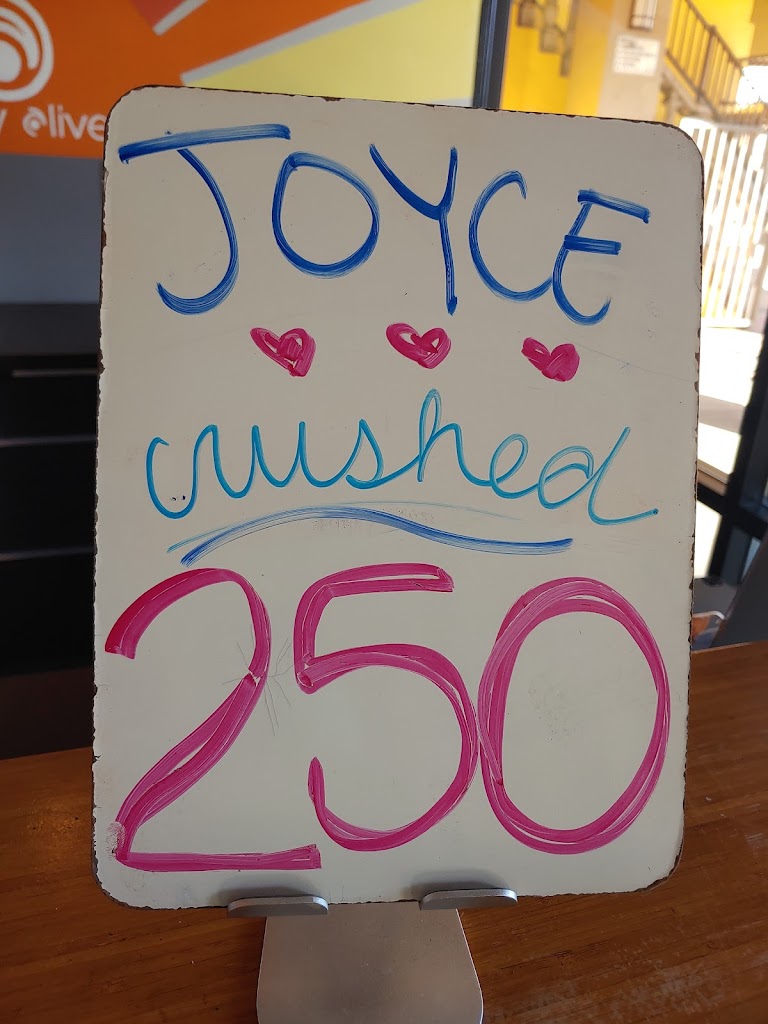 elive
JOYCE
crushed
250